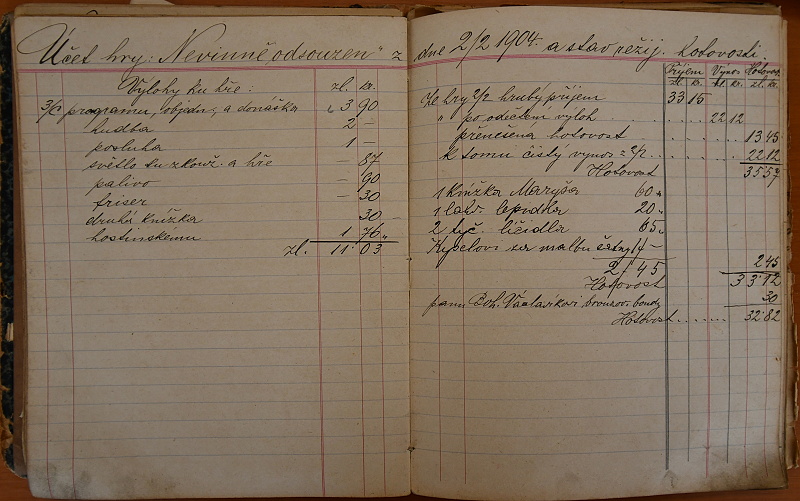 Účet hry: „Nevinně odsouzen" z
Výlohy ku hře: zl. kr.
3/c programu, objedn., a donáška 3 90
hudba 2 –
posluha 1 –
světlo ku zkouš. a hře – 87
palivo – 90
friser – 30
druhá knížka 30 –
hostinskému 1 76 „
zl. 11 03
dne 2/2 1904. a stav režij. hotovosti.
Příjem Výnos Hotovos
zl. kr. zl. kr. zl. kr.
Ze hry 2/2 hrubý příjem 33 15
„ po odečtem výloh 22 12
přenešena hotovost 13 45
k tomu čistý vynos z 2/2 22 12
Hotovost 35 57
1 knížka Maryša 60 „
1 lahv. lepidla 20 „
2 tyč. líčidla 65 „
Kyselovi za malbu 1 –
2 45 2 45
Hotovost 33 12
panu Boh. Václavíkovi bronzov. 30
Hotovost 32 82